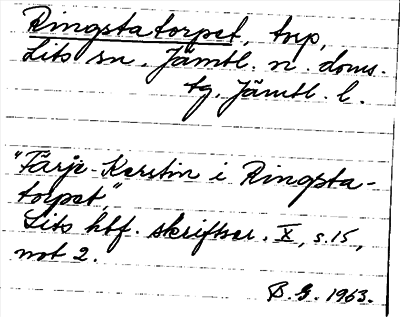 Ringstatorpet, tnp,
Lits sn. Jämtl. n. doms.
tg. Jämtl. l.
"Färje-Kerstin i Ringsta-
torpet,"
Lits hbf. skriftser. X, s. 15,
not 2.
B.G. 1963.